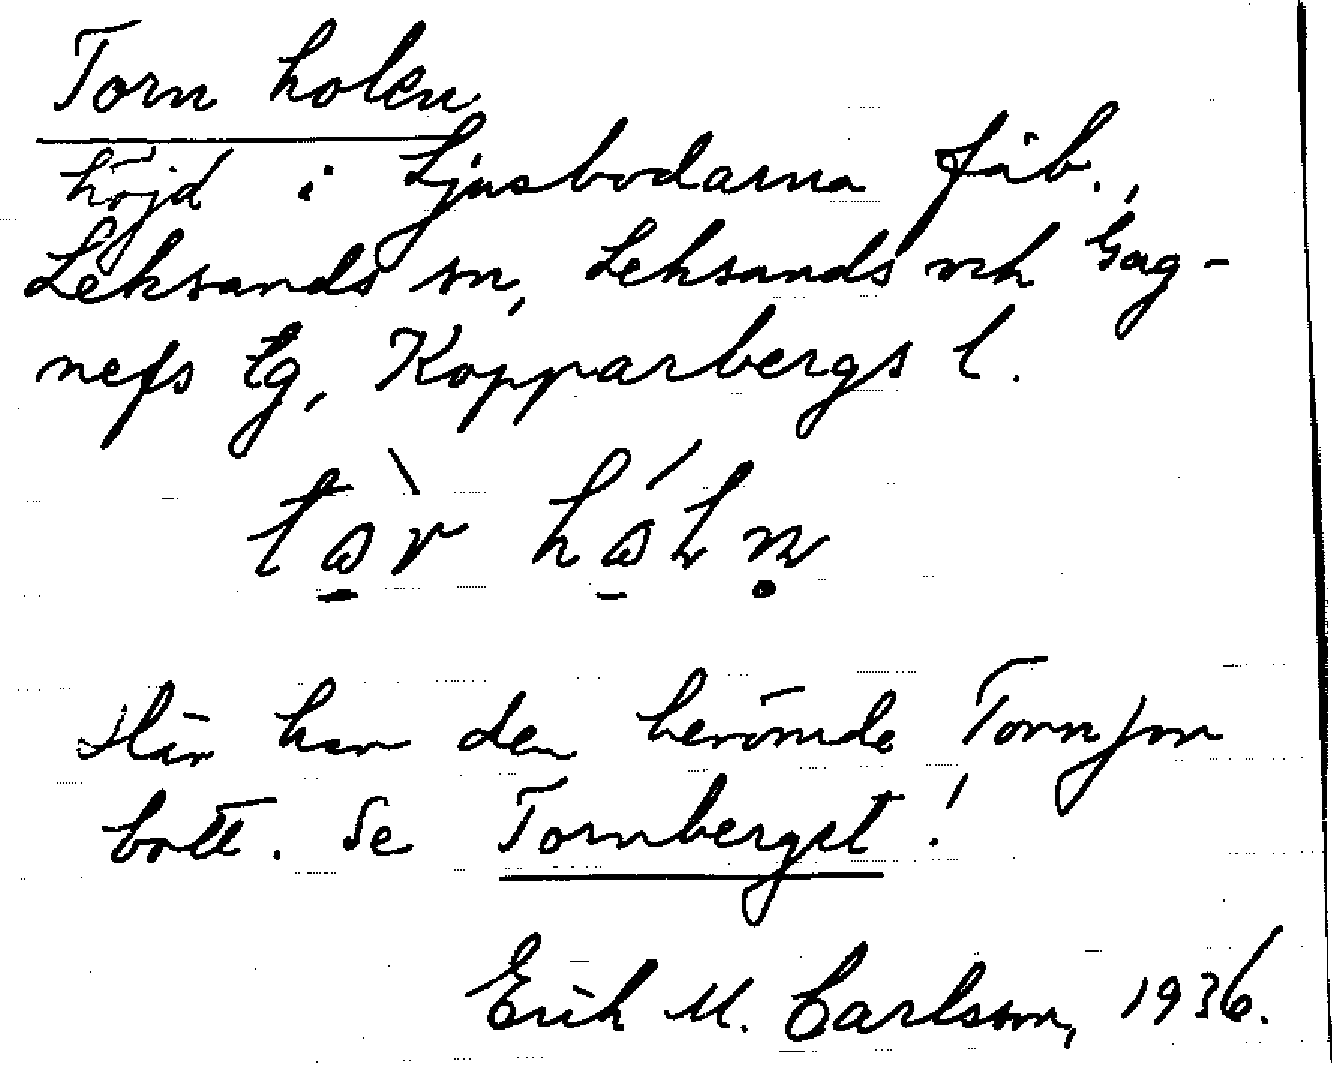 Torn holen
höjd i Ljusbodarna fäb.,
Leksands sn, Leksands och Gag-
nefs tg, Kopparbergs l.
Här har den berömde Tornjon
bott. Se Tornberget!
Erik M. Carlsson, 1936.